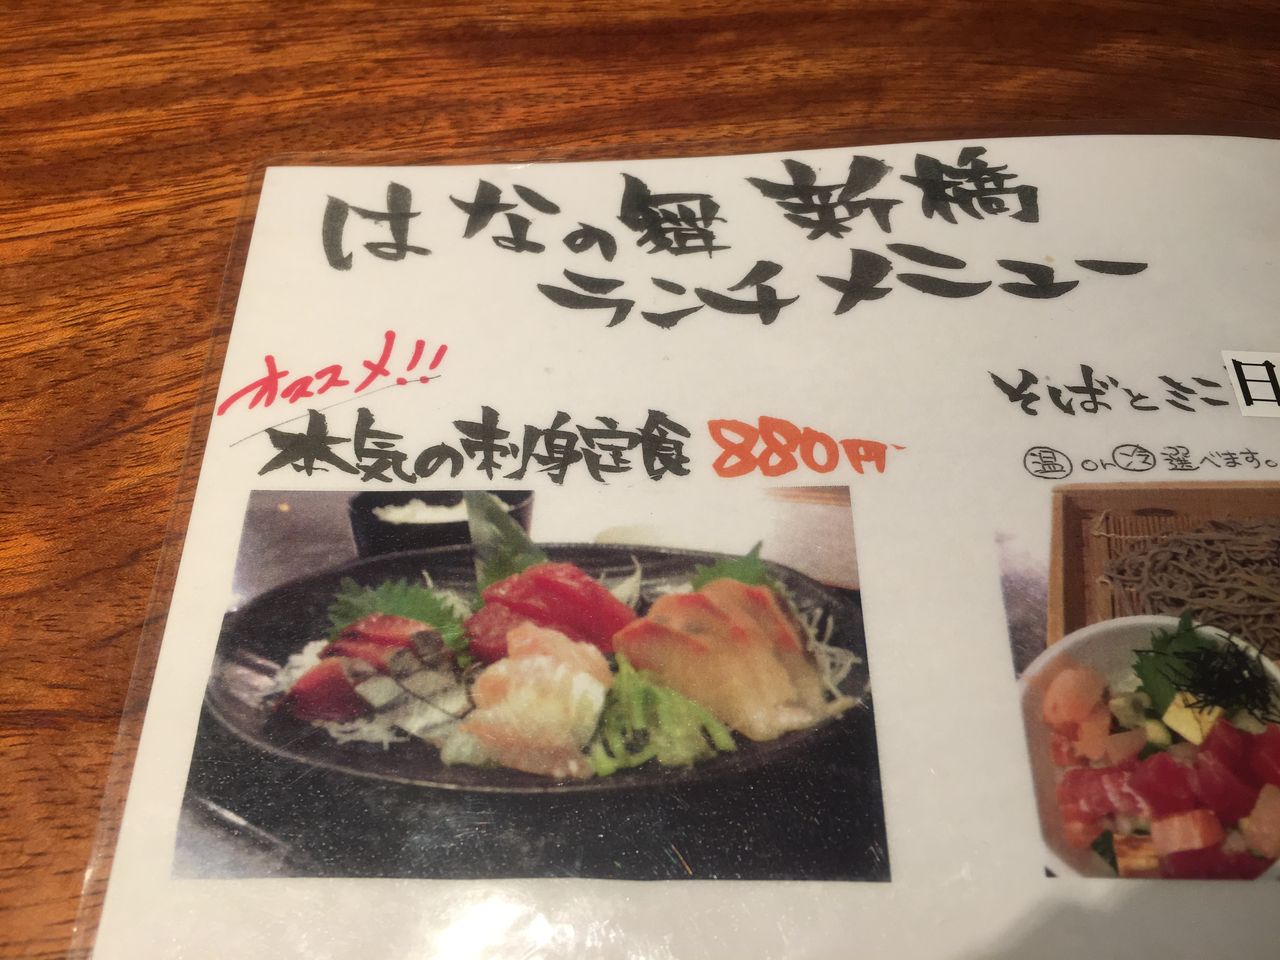 はなの舞 新橋
ランチメニュー
オススメ!!
本気の刺身定食 880円
そばとミニ
日
温or冷 選べます。